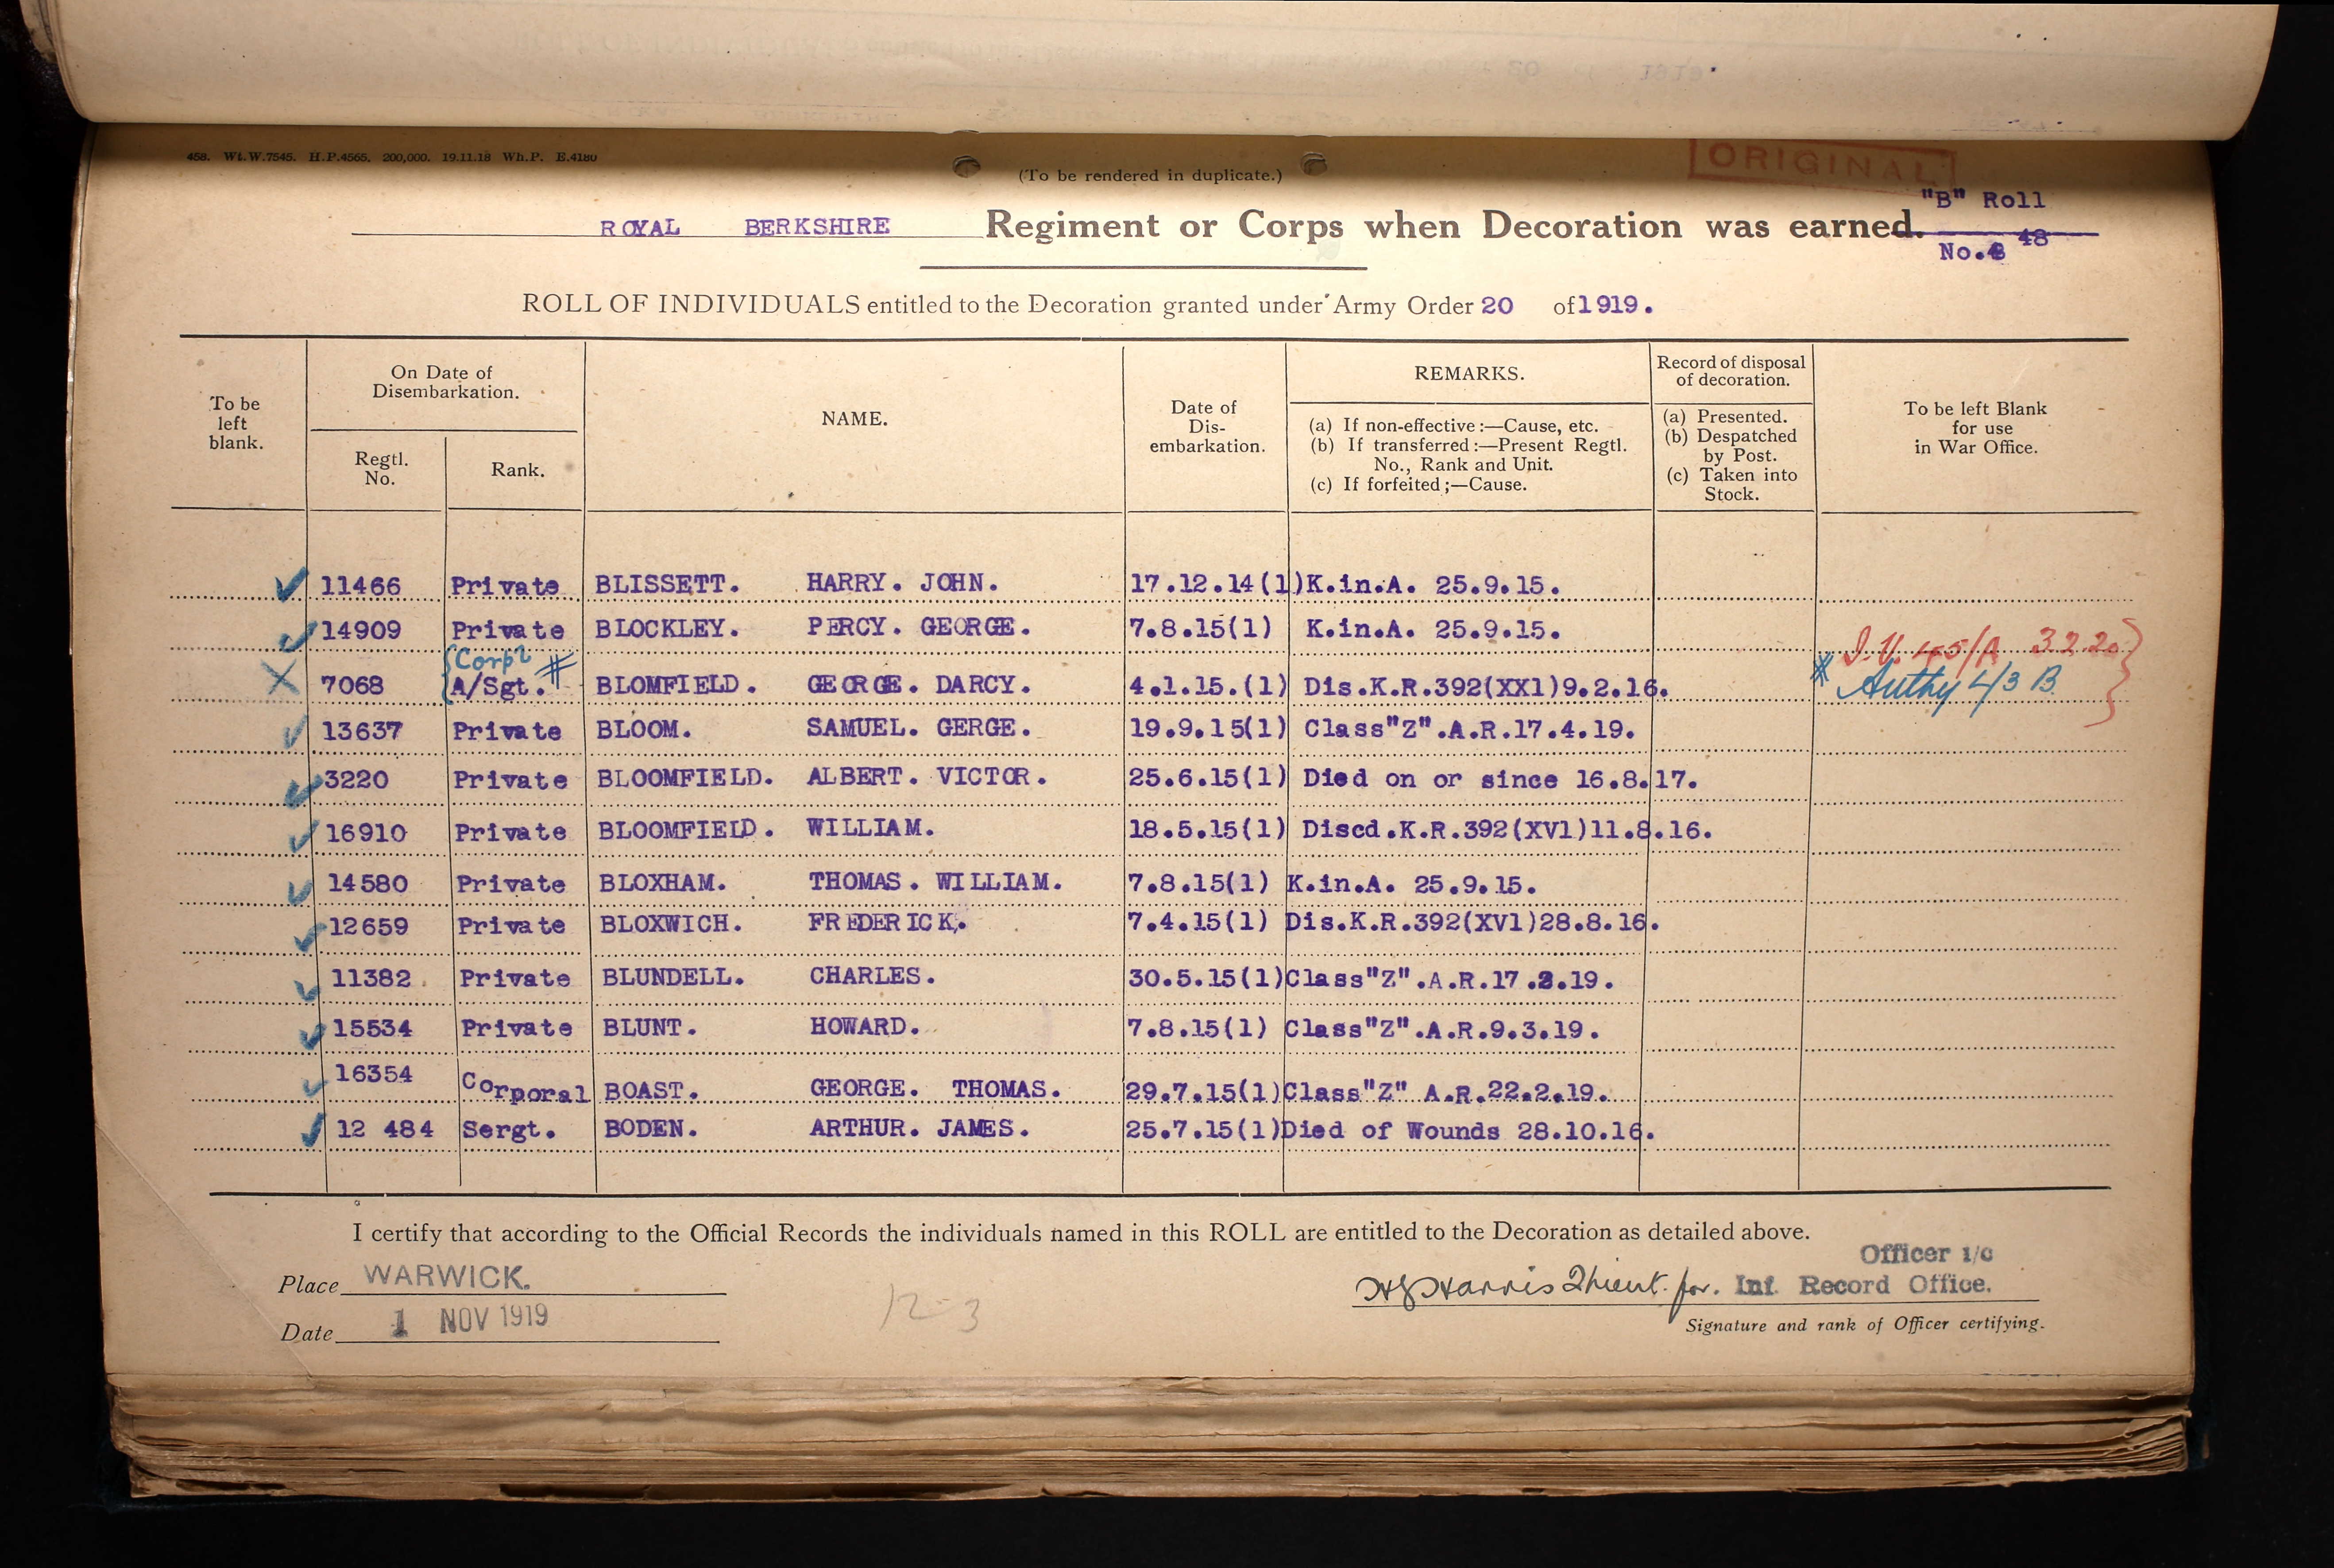 458. Wt.W.7545. H.P.4565. 200,000. 19.11.18 Wh.P. E.4180
(To be rendered in duplicate.)
ORIGINAL
"B" Roll
ROYAL BERKSHIRE Regiment or Corps when Decoration was earned.
No. 48
ROLL OF INDIVIDUALS entitled to the Decoration granted under Army Order 20 of 1919.
To be left blank.
On Date of Disembarkation.
Regtl. No.
Rank.
NAME.
Date of Dis-embarkation.
REMARKS.
(a) If non-effective:—Cause, etc.
(b) If transferred:—Present Regtl. No., Rank and Unit.
(c) If forfeited;—Cause.
Record of disposal of decoration.
(a) Presented.
(b) Despatched by Post.
(c) Taken into Stock.
To be left Blank for use in War Office.
11466 Private BLISSETT. HARRY. JOHN. 17.12.14(1) K.in.A. 25.9.15.
14909 Private BLOCKLEY. PERCY. GEORGE. 7.8.15(1) K.in.A. 25.9.15.
Corpl
I.V. 45/A 3220
7068 A/Sgt. BLOMFIELD. GEORGE. DARCY. 4.1.15.(1) Dis.K.R.392(XX1)9.2.16. Authy 4/3 B
13637 Private BLOOM. SAMUEL. GERGE. 19.9.15(1) Class"Z".A.R.17.4.19.
3220 Private BLOOMFIELD. ALBERT. VICTOR. 25.6.15(1) Died on or since 16.8.17.
16910 Private BLOOMFIELD. WILLIAM. 18.5.15(1) Discd.K.R.392(XV1)11.8.16.
14580 Private BLOXHAM. THOMAS. WILLIAM. 7.8.15(1) K.in.A. 25.9.15.
12659 Private BLOXWICH. FREDERICK. 7.4.15(1) Dis.K.R.392(XV1)28.8.16.
11382 Private BLUNDELL. CHARLES. 30.5.15(1) Class"Z".A.R.17.2.19.
15534 Private BLUNT. HOWARD. 7.8.15(1) Class"Z".A.R.9.3.19.
16354 Corporal BOAST. GEORGE. THOMAS. 29.7.15(1) Class"Z" A.R.22.2.19.
12 484 Sergt. BODEN. ARTHUR. JAMES. 25.7.15(1) Died of Wounds 28.10.16.
I certify that according to the Official Records the individuals named in this ROLL are entitled to the Decoration as detailed above.
Officer i/c
Place WARWICK.
Harris for. Inf. Record Office.
Date 1 NOV 1919
12-3
Signature and rank of Officer certifying.